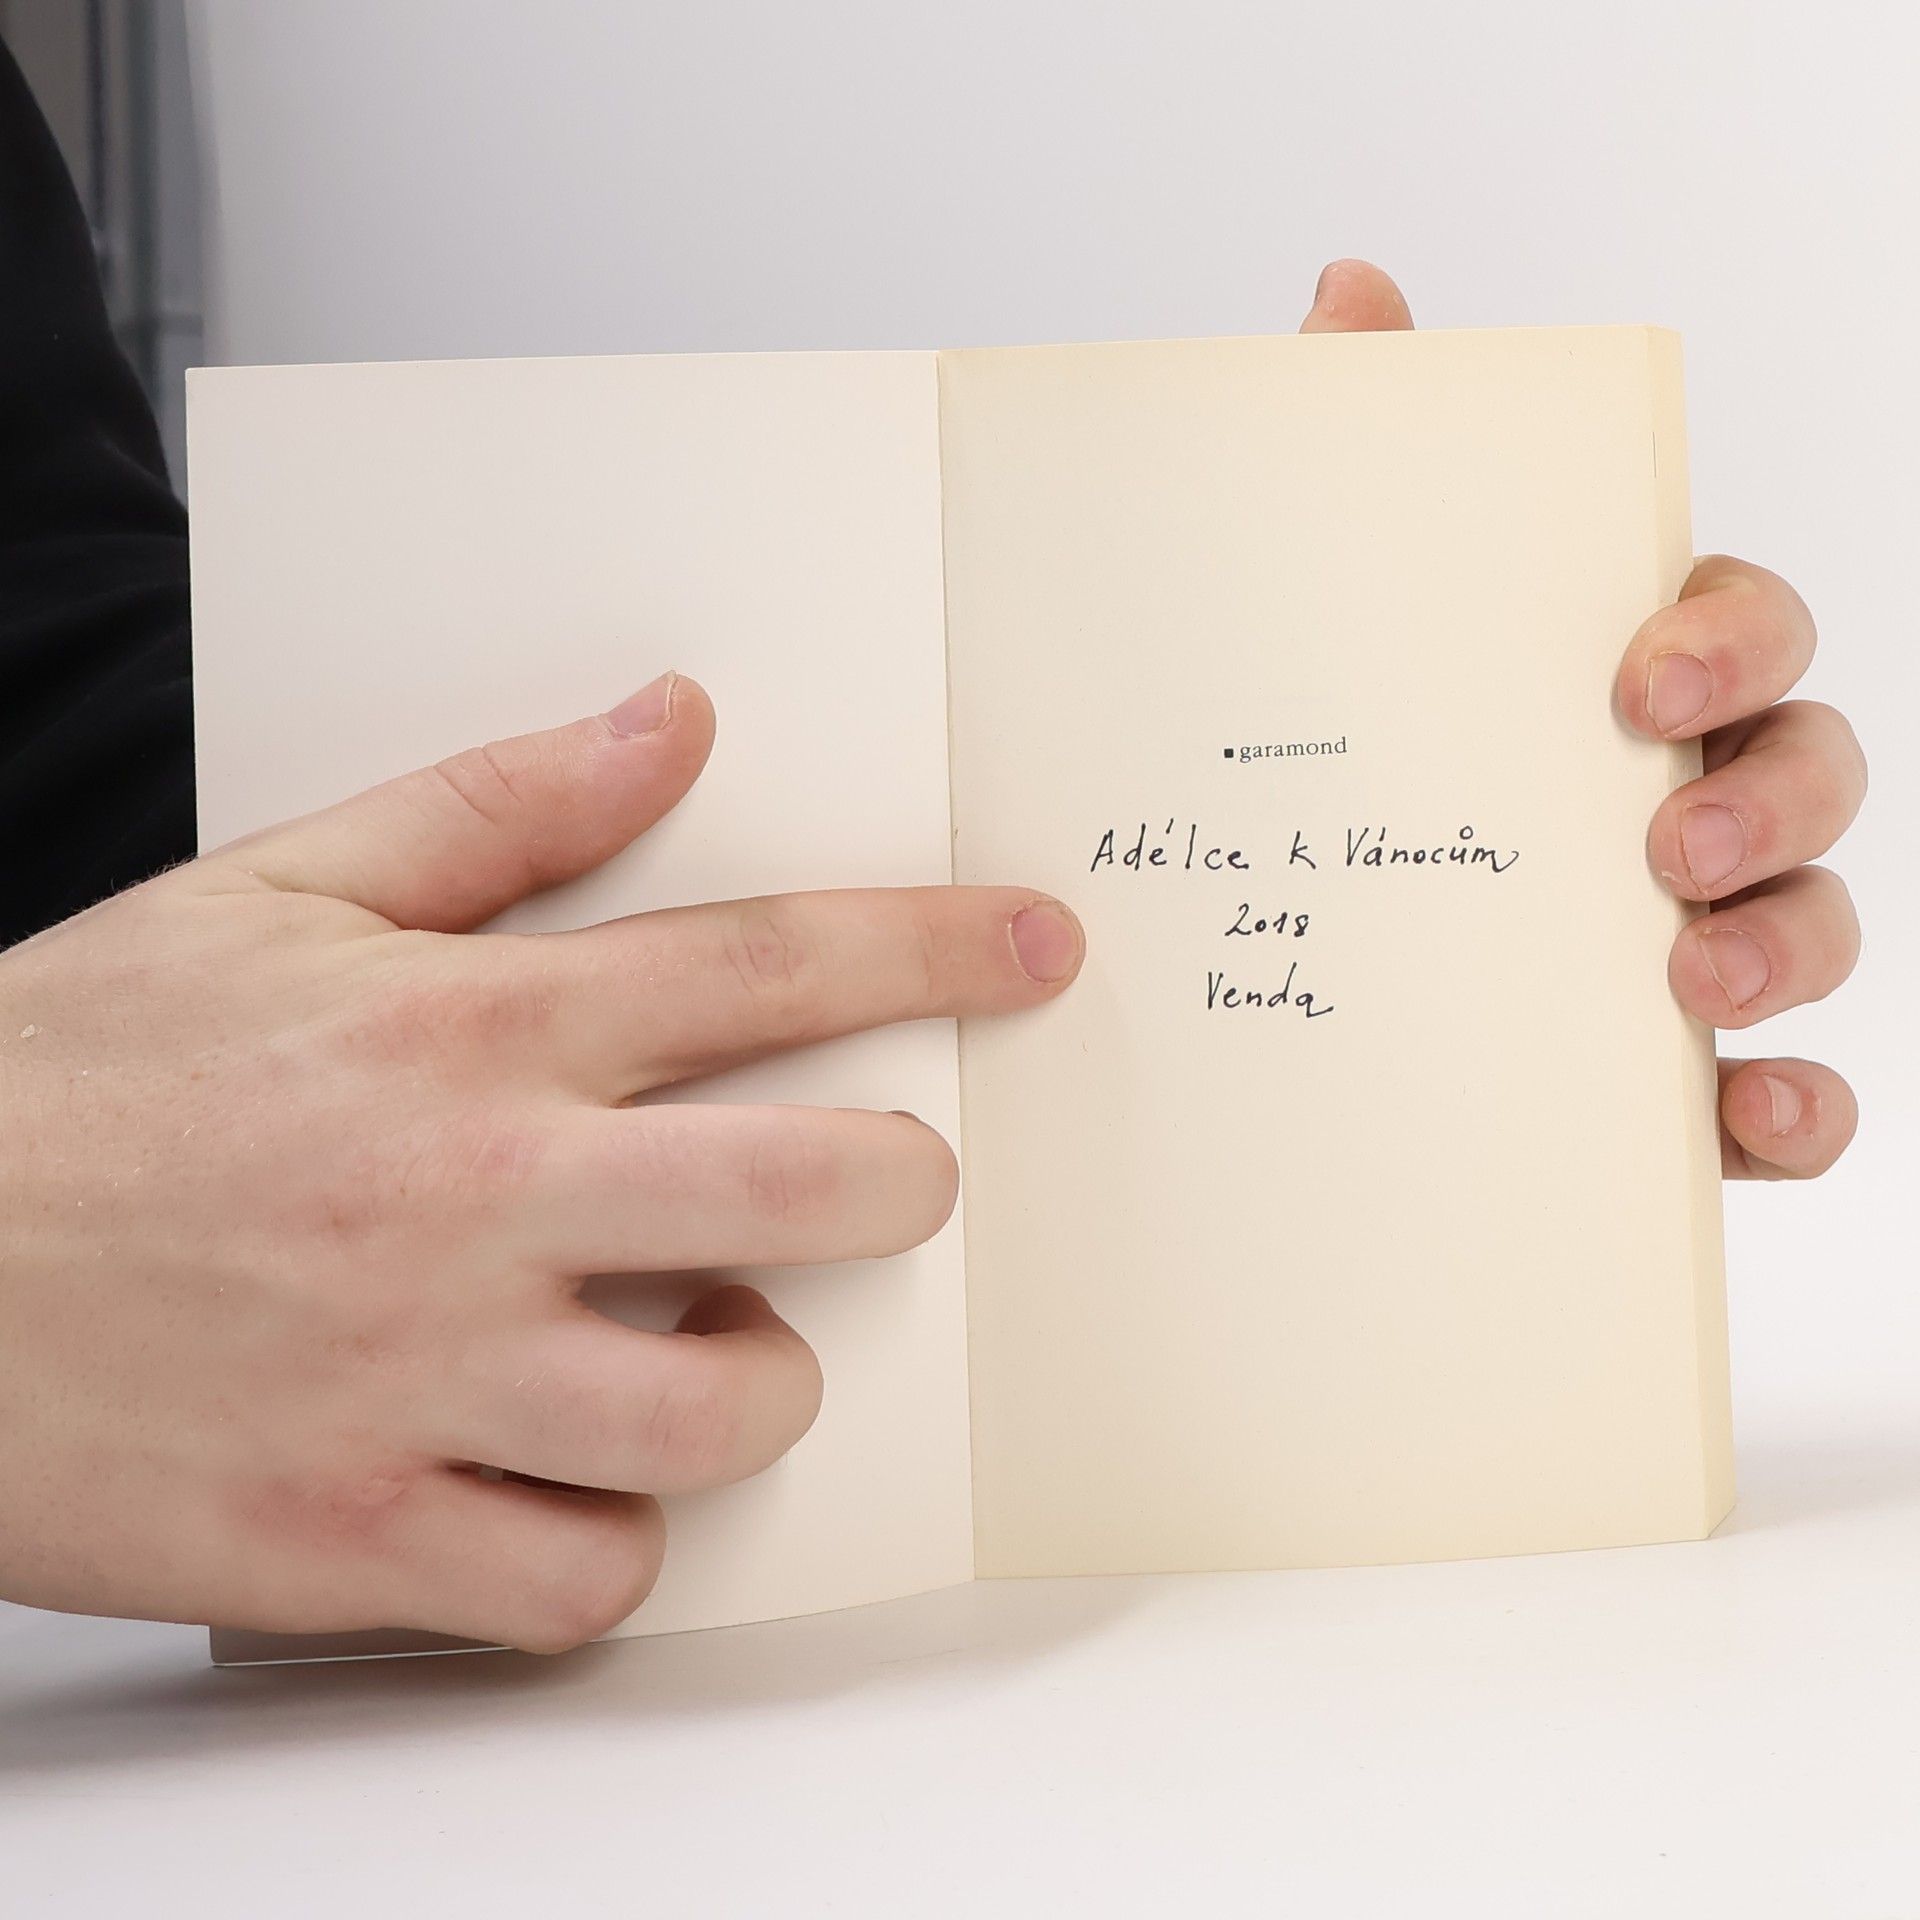 garamond
Adélce k Vánocům
2018
Venda